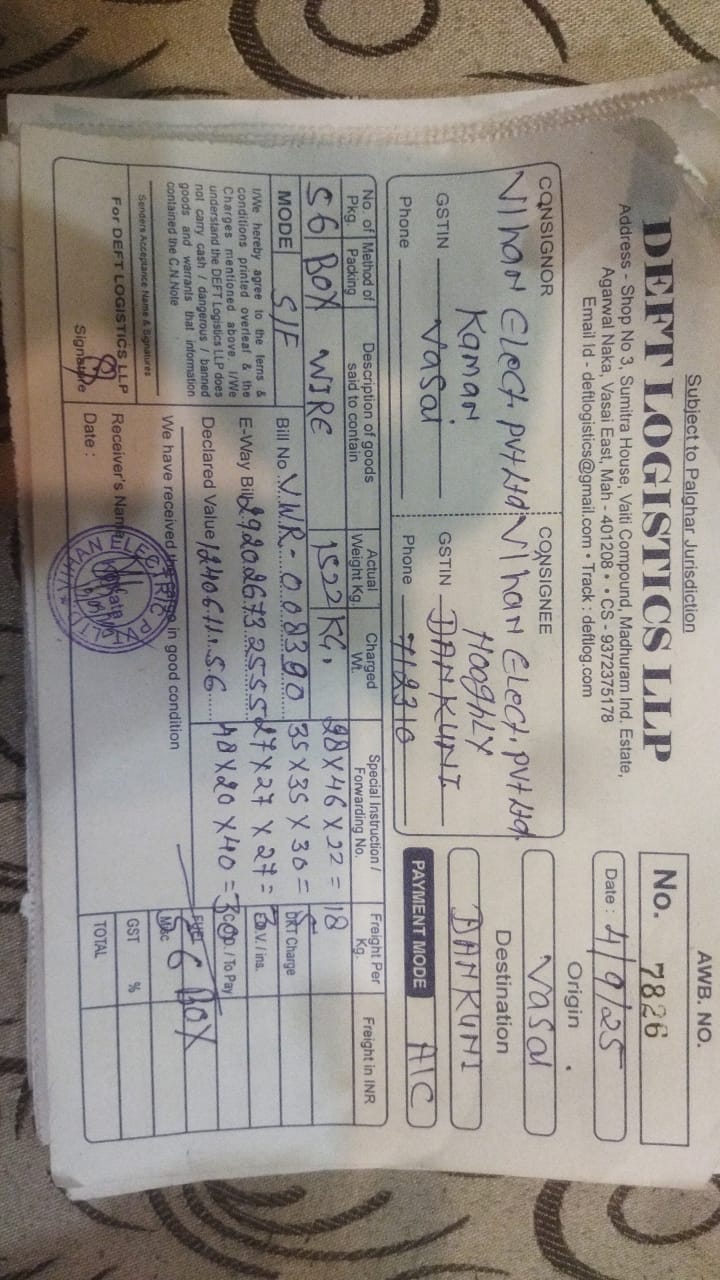 Subject to Palghar Jurisdiction
AWB. NO.
DEFT LOGISTICS LLP
No. 7826
Address - Shop No 3, Sumitra House, Vaiti Compound, Madhuram Ind. Estate,
Agarwal Naka, Vasai East, Mah - 401208 • • CS - 9372375178
Email Id - deftlogistics@gmail.com • Track : deftlog.com
Date : 4/9/25
CONSIGNOR
CONSIGNEE
Origin
Vihan Elect. pvt Ltd
Vihan Elect. pvt Ltd.
Vasai
Kaman
HooghLY
Destination
GSTIN Vasai
GSTIN DANKUNI
DANKUNI
Phone
Phone 712310
PAYMENT MODE A/C
No. of Pkg.
Method of Packing
Description of goods said to contain
Actual Weight Kg.
Charged Wt.
Special Instruction / Forwarding No.
Freight Per Kg.
Freight in INR
56 BOX WIRE 1522 KG. 28 X 46 X 22 = 18
MODE S/F
Bill No. VWR-008390 35 X 35 X 30 = 5
DKT Charge
I/We hereby agree to the terns &
conditions printed overleaf & the
Charges mentioned above. I/We
understand the DEFT Logistics LLP does
not carry cash / dangerous / banned
goods and warrants that information
contained the C.N.Note
E-Way Bill 292026732555 27 X 27 X 27 =
V. / ins.
Declared Value 1240611.56 48 X 20 X 40 =
/ To Pay
FUEL
Misc
56 BOX
We have received in good condition
Senders Acceptance Name & Signatures
GST %
For DEFT LOGISTICS LLP
Receiver's Name
TOTAL
Signature
Date :